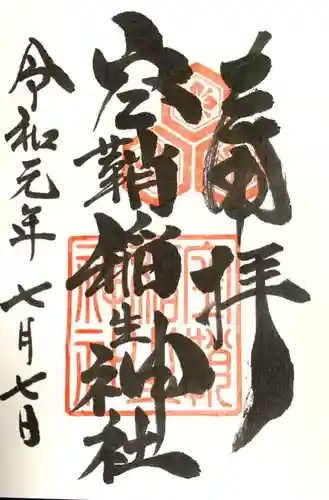 奉拝
空鞘稲生神社
令和元年七月七日